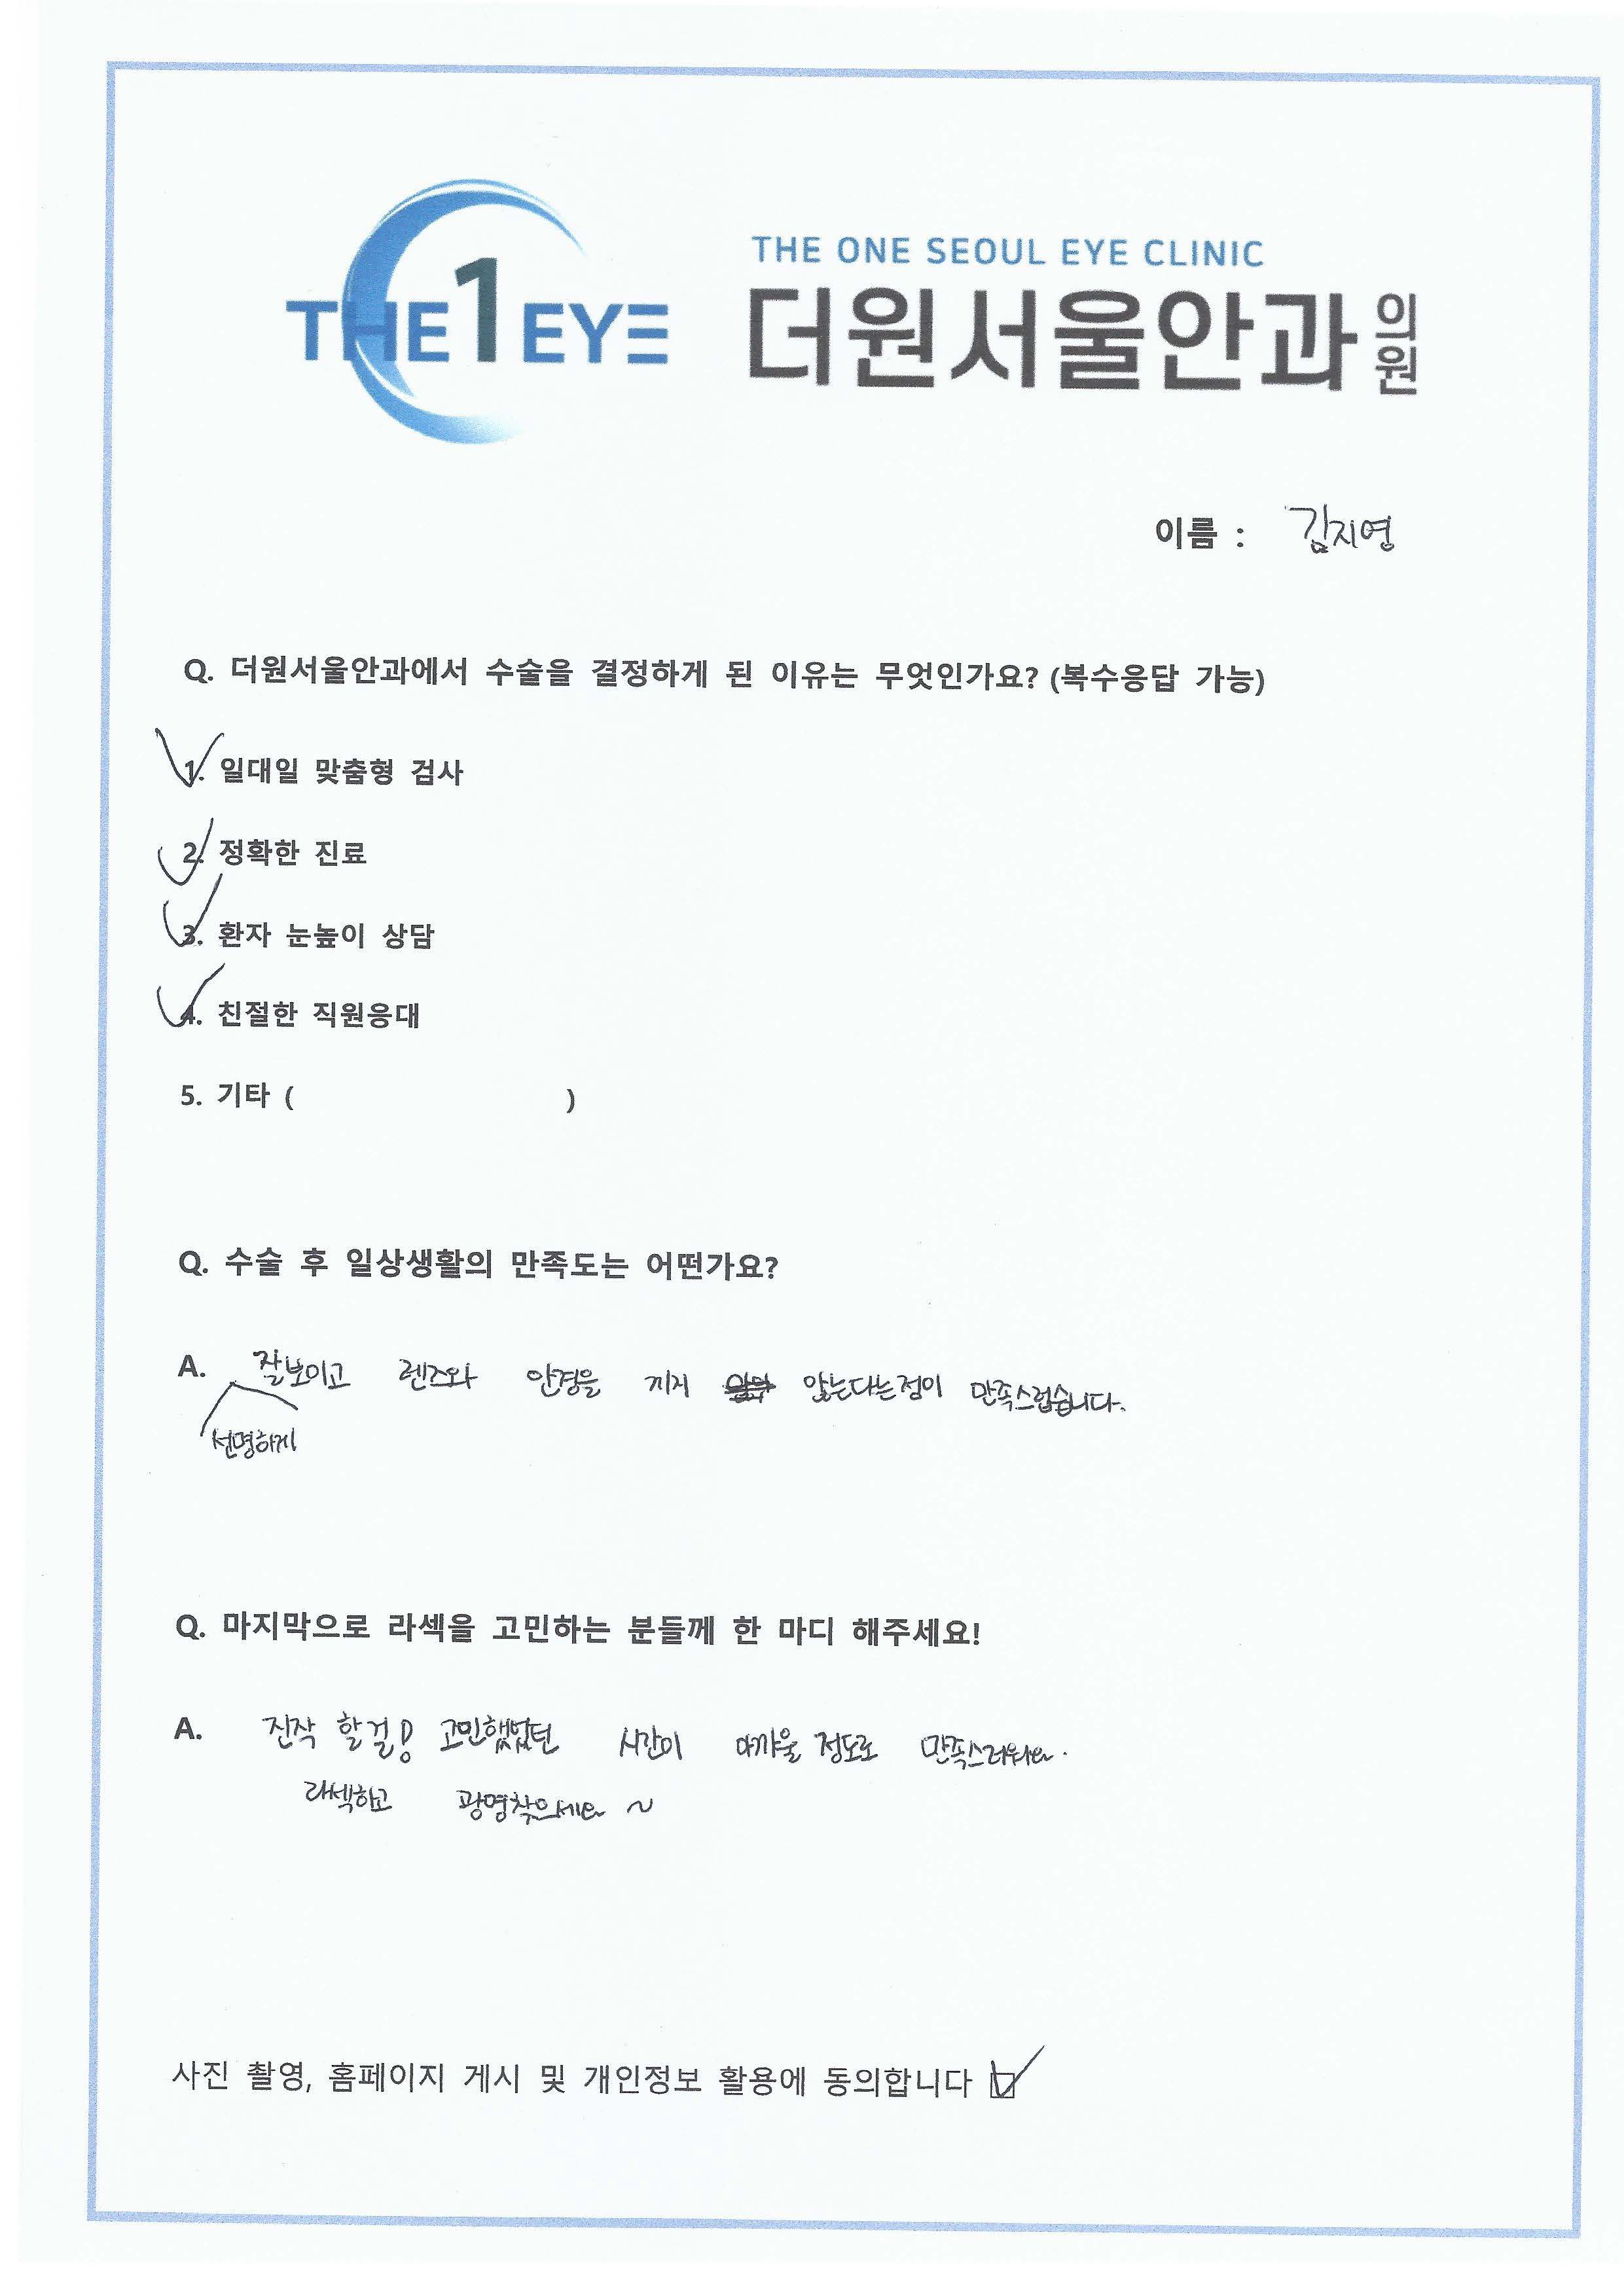 THE1EYE
THE ONE SEOUL EYE CLINIC
더원서울안과의원
이름 : 김지영
Q. 더원서울안과에서 수술을 결정하게 된 이유는 무엇인가요? (복수응답 가능)
1. 일대일 맞춤형 검사
2. 정확한 진료
3. 환자 눈높이 상담
4. 친절한 직원응대
5. 기타 ( )
Q. 수술 후 일상생활의 만족도는 어떤가요?
A. 잘보이고 렌즈와 안경을 끼지 않는다는점이 만족스럽습니다.
선명하게
Q. 마지막으로 라섹을 고민하는 분들께 한 마디 해주세요!
A. 진작 할걸! 고민했었던 시간이 아까울 정도로 만족스러워요.
라섹하고 광명찾으세요 ~
사진 촬영, 홈페이지 게시 및 개인정보 활용에 동의합니다